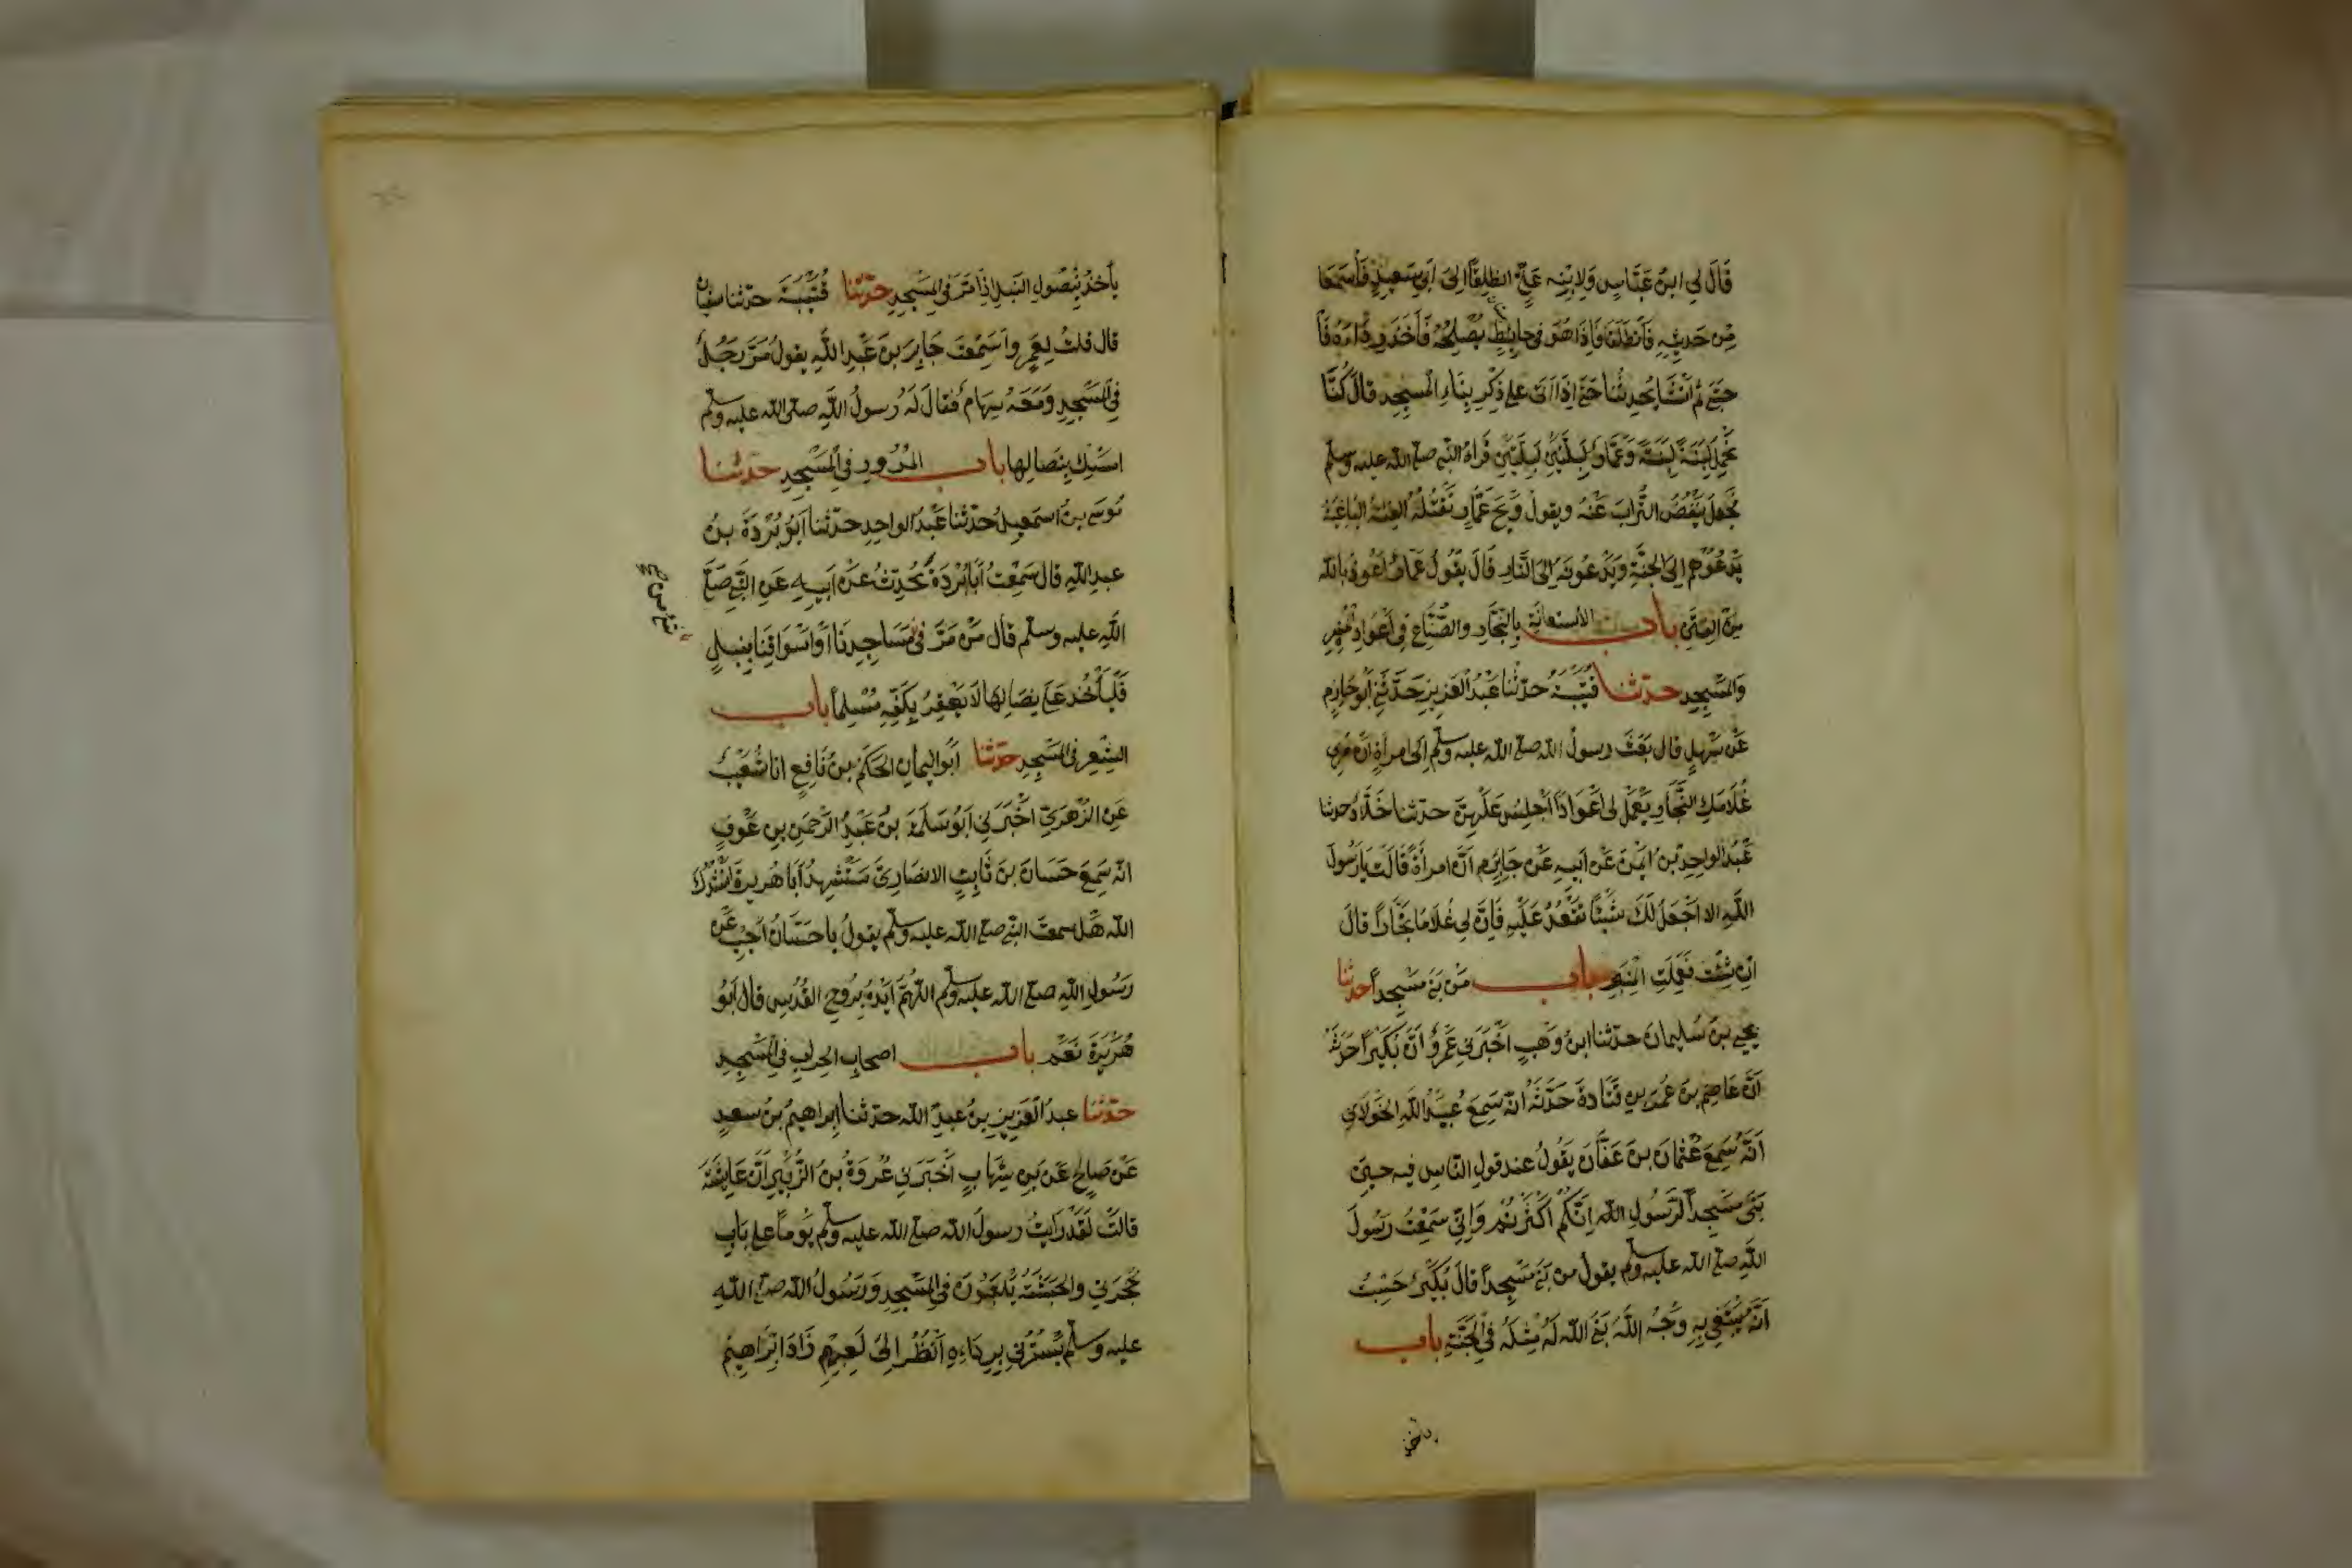 قَالَ لِي ابنُ عَبَّاسٍ وَلِابْنِه عَلِيٍّ انطلِقَا اِلىَ اَبِي سَعِيدٍ فَاسْمَعَا
مِن حَدِيثِهِ فَانْطَلَقَا فَاِذَا هُوَ فِي حايِطٍ يُصْلِحُهُ فَاَخَذَ رِدَاءَهُ فَا
حتَبَى ثُمَّ اَنْشَا يُحَدِّثُنا حَتَّى اِذَا اَتَى عَلى ذِكْرِ بِنَاءِ الْمسجِدِ قالَ كُنَّا
نَحْمِلُ لَبِنَةً لَبِنَةً وَعَمَّارٌ لَبِنَتَيْنِ لَبِنَتَيْنِ فَرَاهُ النَّبِي صلى الله عليه وسلم
فَجَعَلَ يَنْفُضُ التُّرابَ عَنْهُ ويقولُ وَيْحَ عَمَّارٍ تَقْتُلُهُ الفِئَةُ الْبَاغِيَةُ
يَدْعُوهُم اِلىَ الجنَّةِ وَيَدْعُونَهُ اِلىَ النَّارِ قَالَ يَقُولُ عَمَّارٌ اَعُوذُ بِاللهِ
مِنَ الفِتَنِ باب الاستعانَةِ بِالنَّجَّارِ والصُّنَّاعِ فِي اَعْوَادِ المِنْبَرِ
وَالمَسْجِدِ حدّثنا قُتَيْبَةُ حدّثنا عَبْدُ الْعَزِيزِ حَدَّثَنِي اَبُو حَازِمٍ
عَنْ سَهْلٍ قال بَعَثَ رسولُ الله صلى الله عليه وسلم اِلى امرأةٍ اَنْ مُرِي
غُلَامَكِ النَّجَّارَ يَعْمَلْ لِي اَعْوَادًا اَجْلِسُ عَلَيْهِنَّ حدّثنا خَلَّادٌ حدثنا
عَبْدُ الواحِدِ بنُ ايْمَنَ عَنْ اَبيهِ عَن جَابِرٍ اَنَّ امرأَةً قَالَتْ يَارَسُولَ
اللهِ الا اَجْعَلُ لَكَ شَيْئًا تَقْعُدُ عَلَيْهِ فَاِنَّ لِي غُلَامًا نَجَّارًا قَالَ
اِنْ شِئْتِ فَعَمِلَتِ الْمِنْبَرَ باب مَنْ بَنَى مَسْجِدًا حدثنا
يحيى بنُ سُليمانَ حدّثنا ابنُ وَهْبٍ اَخْبَرَنِي عَمْرٌو اَنَّ بُكَيْرًا حَدَّثَهُ
اَنَّ عَاصِمَ بنَ عُمَرَ بنِ قَتَادَةَ حَدَّثَهُ انّه سَمِعَ عُبَيْدَ اللهِ الخَوْلَانِي
اَنَّهُ سَمِعَ عُثمانَ بنَ عَفَّانَ يَقُولُ عندَ قولِ النَّاسِ فيه حِينَ
بَنَى مَسْجِدَ الرَسُولِ اللهِ اِنَّكُمْ اَكْثَرْتُمْ وَاِنِّي سَمِعْتُ رَسُولَ
اللهِ صلى الله عليه وسلم يقول من بَنَى مَسْجِدًا قالَ بُكَيْرٌ حَسِبْتُ
اَنَّهُ يَبْتَغِي بِهِ وَجْهَ اللهِ بَنَى اللهُ لَهُ مِثْلَهُ فِي الْجَنَّةِ باب
ياخذ
يأخذ بِنُصُولِ النَّبْلِ اِذَا مَرَّ فِي الْمَسْجِدِ حدّثنا قُتَيْبَةُ حدّثنا سفيان
قال قلتُ لِعَمْرٍو اَسَمِعْتَ جَابِرَ بنَ عَبْدِ اللهِ يقولُ مَرَّ رَجُلٌ
فِي الْمَسْجِدِ وَمَعَهُ سِهَامٌ فَقَالَ لَهُ رسولُ اللهِ صلى الله عليه وسلم
امسِكْ بِنِصَالِها باب المُرُورِ فِي الْمَسْجِدِ حدّثنا
مُوسَى بنُ اسمعِيلَ حدّثنا عَبْدُ الواحِدِ حدّثنا اَبُو بُرْدَةَ بنُ
عبدِ اللهِ قال سَمِعْتُ اَبَا بُرْدَةَ يُحَدِّثُ عَنْ اَبِيهِ عَنِ النَّبِي صلى
اللهِ عليه وسلم قال مَنْ مَرَّ فِي مَسَاجِدِنَا اَوْ اَسْوَاقِنَا بِنَبْلٍ
فَلْيَأْخُذْ عَلى نِصَالِهَا لَا يَعْقِرْ بِكَفِّهِ مُسْلِمًا باب
الشِّعْرِ فِي المَسْجِدِ حدّثنا اَبُو اليَمانِ الحَكَمُ بنُ نَافِعٍ انا شُعَيْبٌ
عَنِ الزُّهْرِيِّ اَخْبَرَنِي اَبُو سَلَمَةَ بنُ عَبْدِ الرَّحْمَنِ بنِ عَوْفٍ
انّه سَمِعَ حَسَانَ بنَ ثَابِتٍ الانصَارِيَّ يَسْتَشْهِدُ اَبَا هُرَيرةَ اَنْشُدُكَ
الله هَلْ سمعتَ النّبي صلى الله عليه وسلم يقولُ يا حَسَّانُ اَجِبْ عَنْ
رَسُولِ اللهِ صلى الله عليه وسلم اللهُمَّ اَيِّدْهُ بِرُوحِ القُدُسِ قال اَبُو
هُرَيْرَةَ نَعَمْ باب اصحابِ الحِرابِ فِي الْمَسْجِدِ
حدّثنا عبدُ الْعَزِيزِ بنُ عبدِ الله حدّثنا اِبراهيمُ بنُ سعدٍ
عَنْ صَالِحٍ عَنْ بنِ شِهَابٍ اَخْبَرَنِي عُرْوَةُ بنُ الزُّبَيْرِ اَنَّ عَايِشَةَ
قالت لَقَدْ رَايْتُ رسولَ الله صلى الله عليه وسلم يَوْمًا على بَابِ
حُجْرَتِي والحَبَشَةُ يَلْعَبُونَ فِي المَسْجِدِ وَرَسُولُ الله صلى اللهِ
عليه وسلم يَسْتُرُنِي بِرِدَاءِهِ اَنْظُرُ اِلَى لَعِبِهِمْ زَادَ اِبْرَاهِيمُ